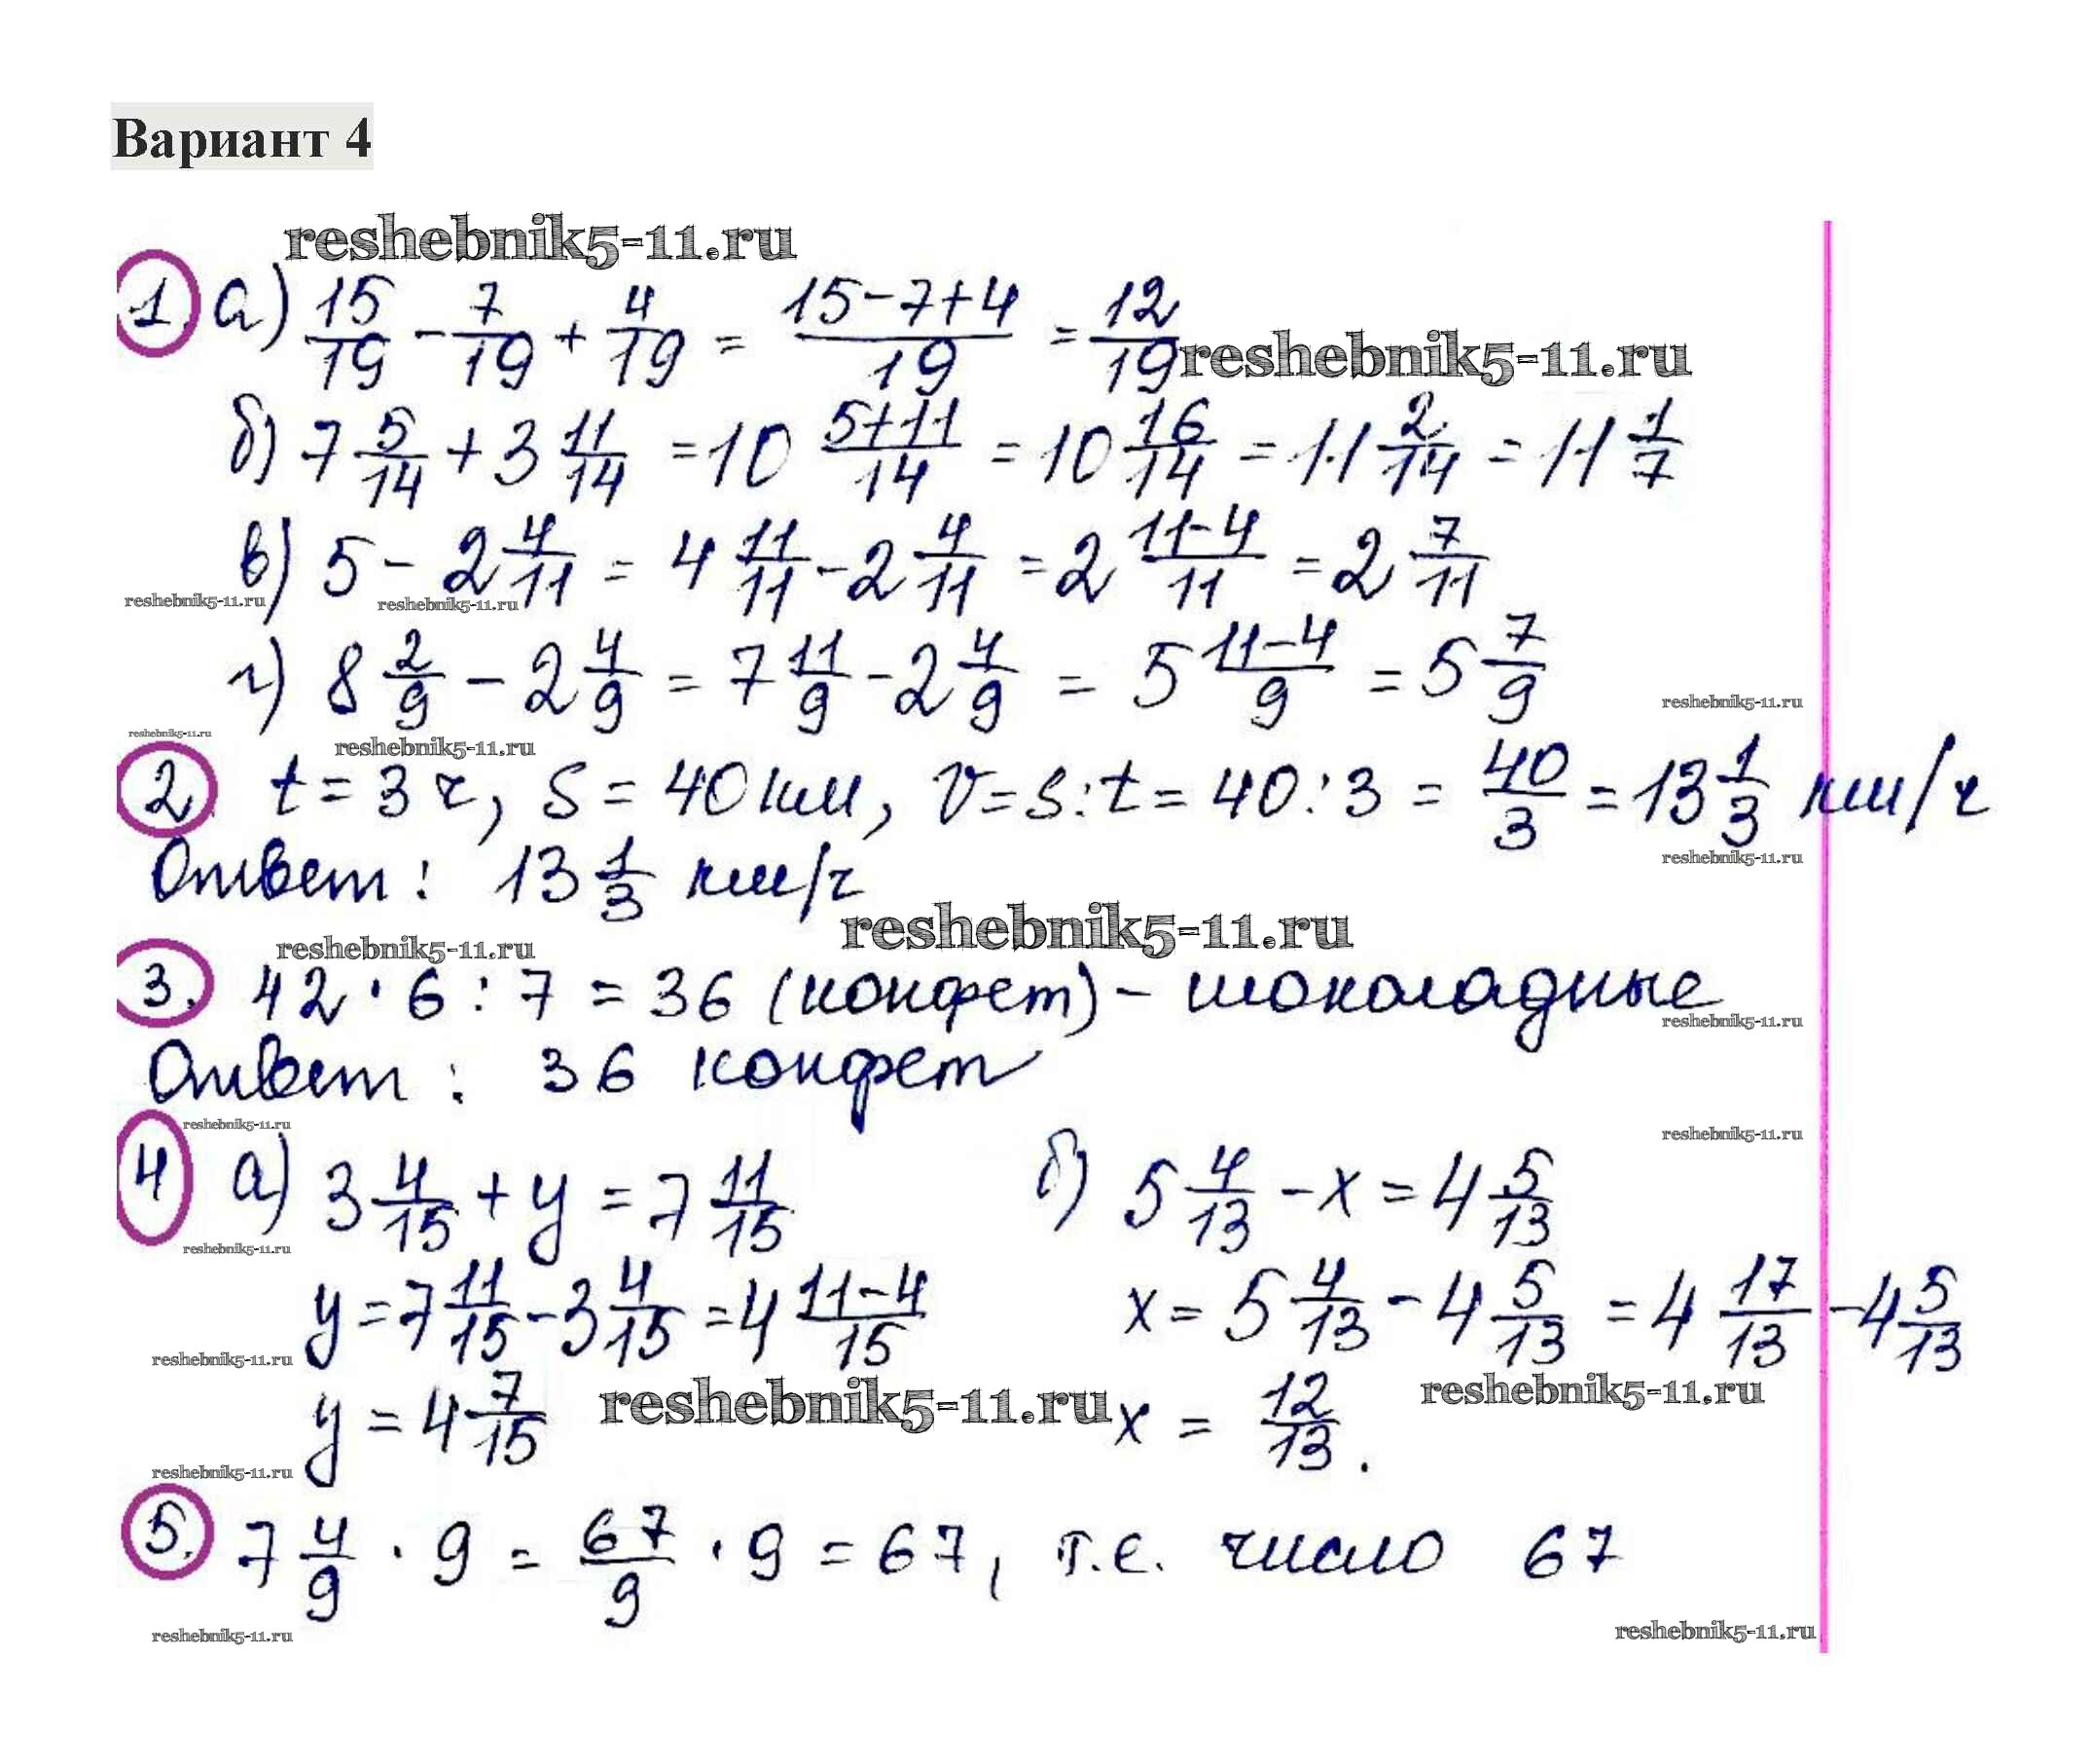 Вариант 4
reshebnik5-11.ru
1. а) 15/19 - 7/19 + 4/19 = (15-7+4)/19 = 12/19 reshebnik5-11.ru
б) 7 5/14 + 3 11/14 = 10 (5+11)/14 = 10 16/14 = 11 2/14 = 11 1/7
в) 5 - 2 4/11 = 4 11/11 - 2 4/11 = 2 (11-4)/11 = 2 7/11
reshebnik5-11.ru reshebnik5-11.ru
г) 8 2/9 - 2 4/9 = 7 11/9 - 2 4/9 = 5 (11-4)/9 = 5 7/9
reshebnik5-11.ru
reshebnik5-11.ru reshebnik5-11.ru
2. t = 3 ч, S = 40 км, v = s : t = 40 : 3 = 40/3 = 13 1/3 км/ч
reshebnik5-11.ru
Ответ: 13 1/3 км/ч
reshebnik5-11.ru reshebnik5-11.ru
3. 42 · 6 : 7 = 36 (конфет) - шоколадные
reshebnik5-11.ru
Ответ: 36 конфет
reshebnik5-11.ru reshebnik5-11.ru
4 а) 3 4/15 + y = 7 11/15 б) 5 4/13 - x = 4 5/13
reshebnik5-11.ru
y = 7 11/15 - 3 4/15 = 4 (11-4)/15 x = 5 4/13 - 4 5/13 = 4 17/13 - 4 5/13
reshebnik5-11.ru reshebnik5-11.ru reshebnik5-11.ru
y = 4 7/15 x = 12/13.
reshebnik5-11.ru
5. 7 4/9 · 9 = 67/9 · 9 = 67, т.е. число 67
reshebnik5-11.ru reshebnik5-11.ru